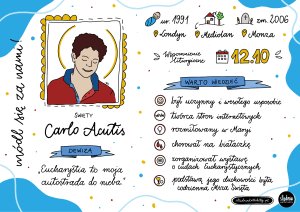 módl się za nami!
ur. 1991
zm. 2006
Londyn
Mediolan
Monza
Wspomnienie
liturgiczne
12.10
ŚWIĘTY
Carlo Acutis
DEWIZA
„Eucharystia to moja
autostrada do nieba”
WARTO WIEDZIEĆ
był uczynny i wesołego usposobienia
twórca stron internetowych
rozmiłowany w Maryi
chorował na białaczkę
zorganizował wystawę
o cudach Eucharystycznych
podstawą jego duchowości była
codzienna Msza Święta